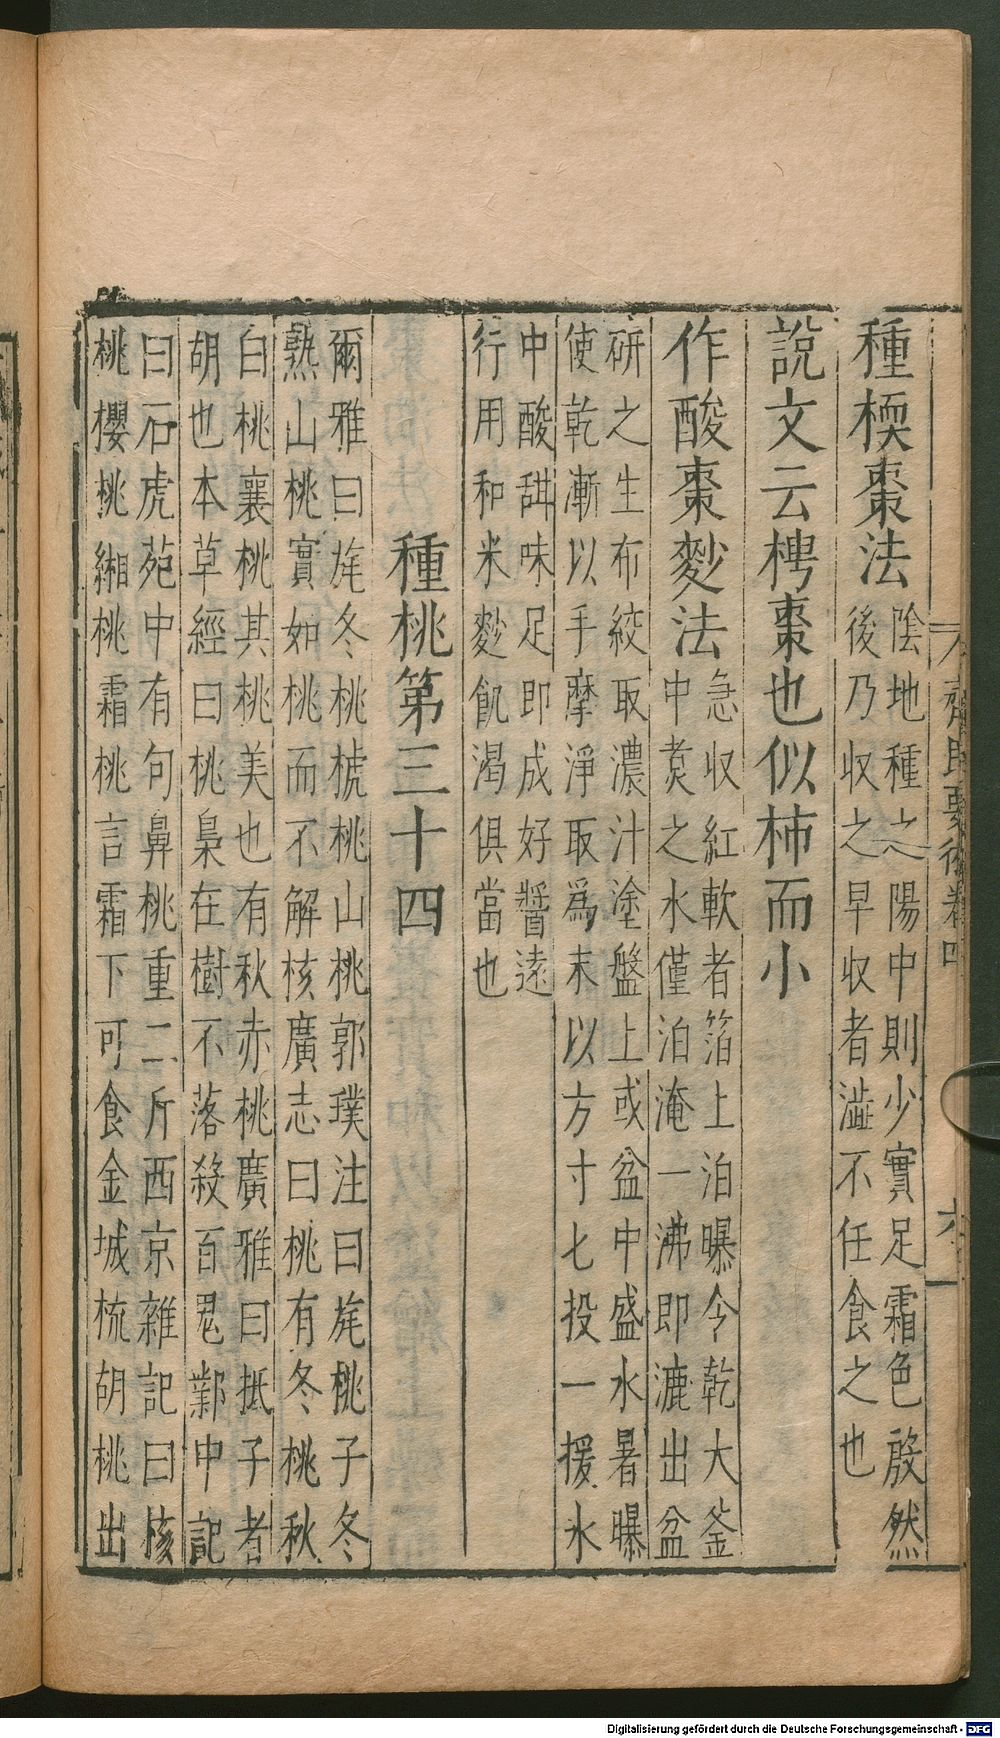 齊民要術卷四
六
種㮕棗法陰地種之陽中則少實足霜色殷然
後乃收之早收者澁不任食之也
說文云梬棗也似柿而小
作酸棗麨法急收紅軟者箔上泊曝令乾大釜
中煑之水僅泊淹一沸即漉出盆
研之生布絞取濃汁塗盤上或盆中盛水暑曝
使乾漸以手摩淨取爲末以方寸匕投一援水
中酸甜味足即成好醬遠
行用和米麨飢渴俱當也
種桃第三十四
爾雅曰旄冬桃榹桃山桃郭璞注曰旄桃子冬
熟山桃實如桃而不解核廣志曰桃有冬桃秋
白桃襄桃其桃美也有秋赤桃廣雅曰抵子者
胡也本草經曰桃梟在樹不落殺百鬼鄴中記
曰石虎苑中有句鼻桃重二斤西京雜記曰核
桃櫻桃緗桃霜桃言霜下可食金城梳胡桃出
Digitalisierung gefördert durch die Deutsche Forschungsgemeinschaft - DFG